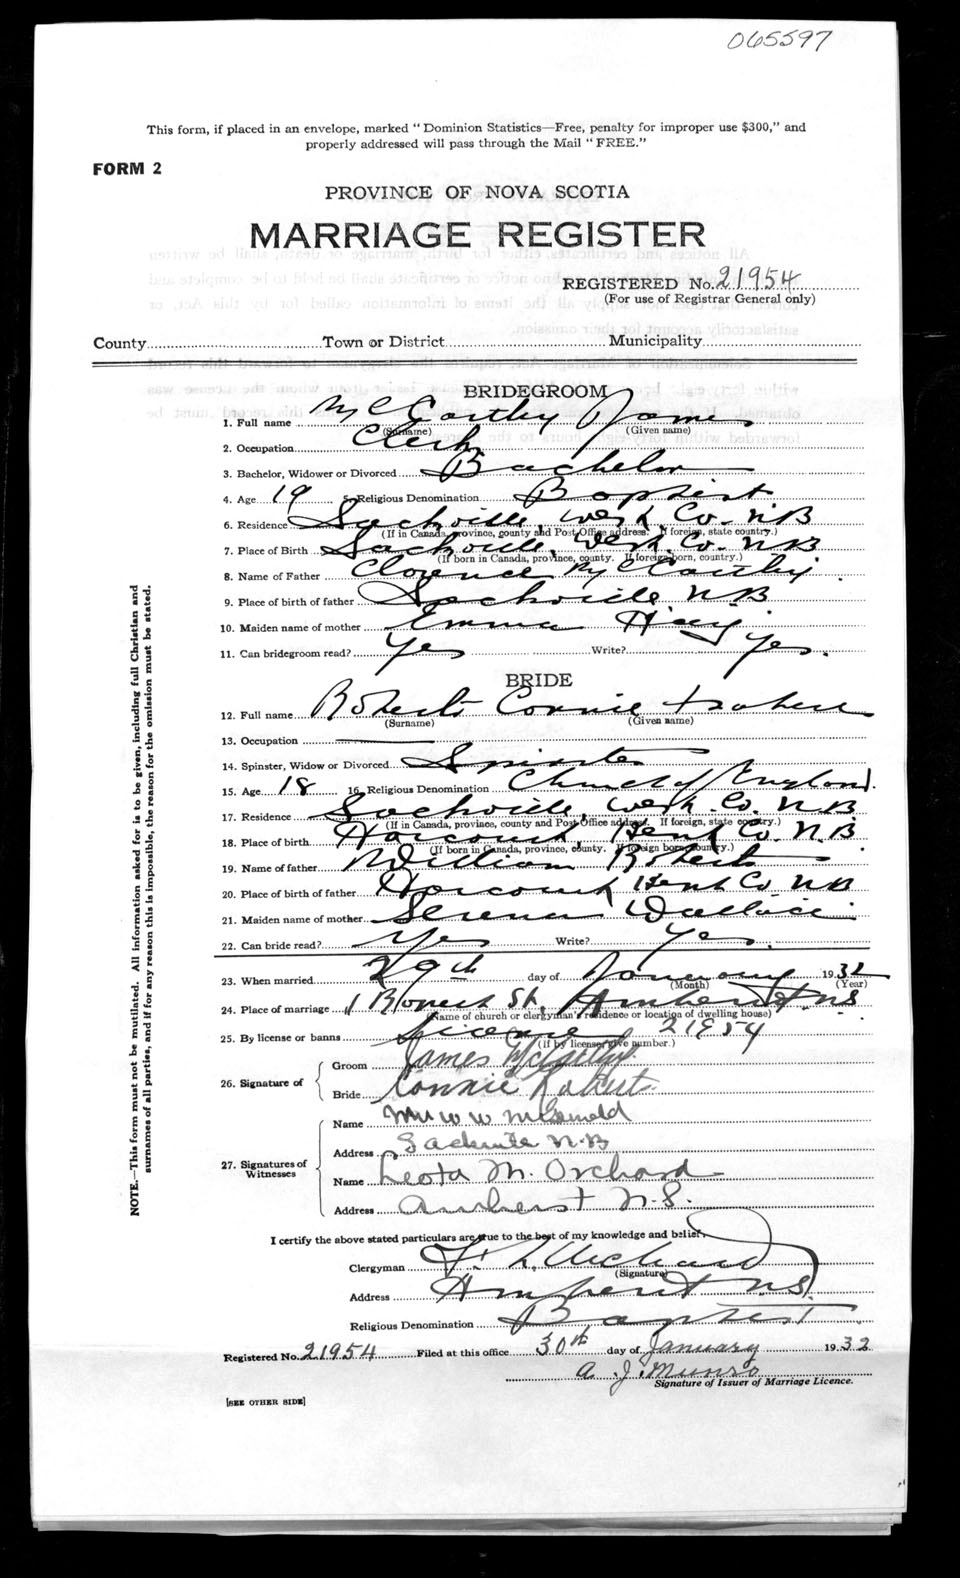 065597
This form, if placed in an envelope, marked "Dominion Statistics—Free, penalty for improper use $300," and
properly addressed will pass through the Mail "FREE."
FORM 2
PROVINCE OF NOVA SCOTIA
MARRIAGE REGISTER
REGISTERED No. 21954
(For use of Registrar General only)
County Town or District Municipality
BRIDEGROOM
1. Full name McCarthy James
(Surname) (Given name)
2. Occupation Clerk
3. Bachelor, Widower or Divorced Bachelor
4. Age 19 5. Religious Denomination Baptist
6. Residence Sackville, West. Co. N.B
(If in Canada, province, county and Post Office address. If foreign, state country.)
7. Place of Birth Sackville, West. Co. N.B
(If born in Canada, province, county. If foreign born, country.)
8. Name of Father Clarence McCarthy
9. Place of birth of father Sackville N.B
10. Maiden name of mother Emma
11. Can bridegroom read? Yes Write? Yes.
BRIDE
12. Full name Roberts Connie Isabell
(Surname) (Given name)
13. Occupation
14. Spinster, Widow or Divorced Spinster
15. Age 18 16. Religious Denomination Church of England.
17. Residence Sackville, West. Co. N.B
(If in Canada, province, county and Post Office address. If foreign, state country.)
18. Place of birth Harcourt, Kent Co. N.B
(If born in Canada, province, county. If foreign born country.)
19. Name of father William Roberts
20. Place of birth of father Harcourt Kent Co N.B
21. Maiden name of mother Serena Wallace
22. Can bride read? Yes Write? Yes.
23. When married 29th day of January 1932
(Month) (Year)
24. Place of marriage St. Amherst N.S
(Name of church or clergyman's residence or location of dwelling house)
25. By license or banns License 21954
(If by license give number.)
26. Signature of
Groom James McCarthy
Bride Connie Roberts
27. Signatures of Witnesses
Name Mrs W W
Address Sackville N.B
Name Leota M. Orchard
Address Amherst N.S.
I certify the above stated particulars are true to the best of my knowledge and belief.
Clergyman Orchard
(Signature)
Address Amherst N.S.
Religious Denomination Baptist
Registered No. 21954 Filed at this office 30th day of January 1932
A. J. Munro
Signature of Issuer of Marriage Licence.
[SEE OTHER SIDE]
NOTE.—This form must not be mutilated. All information asked for is to be given, including full Christian and
surnames of all parties, and if for any reason this is impossible, the reason for the omission must be stated.